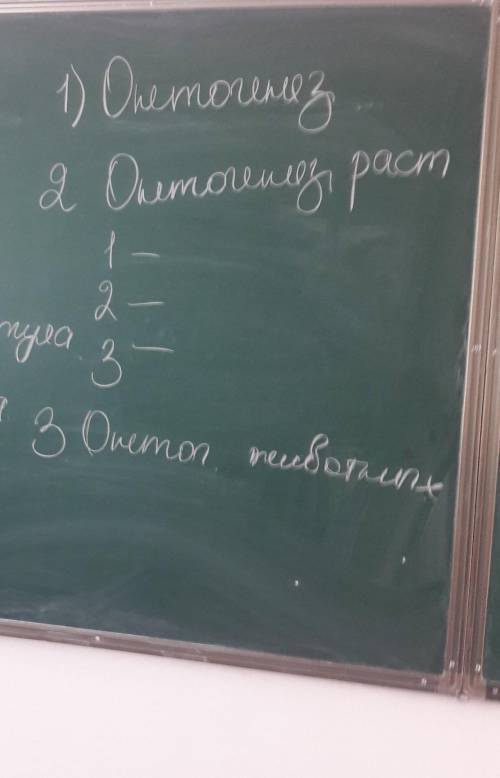 1) Онтогенез
2 Онтогенез раст
1 –
2 –
3 –
3 Онтог. животных